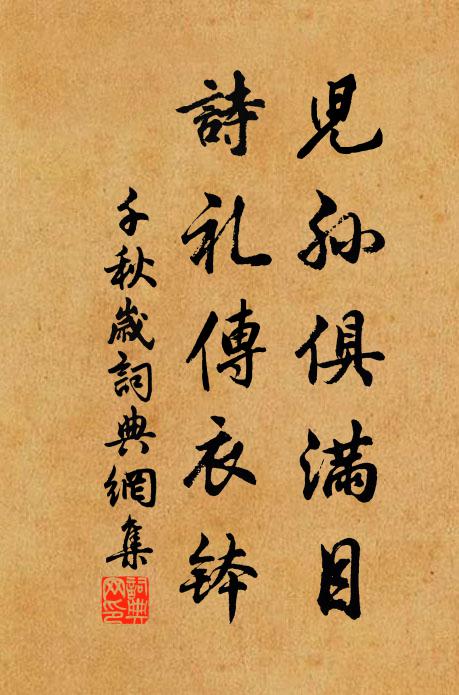 兒孫俱滿目
詩礼傳衣鉢
千秋歲詞典網集
詞典網印